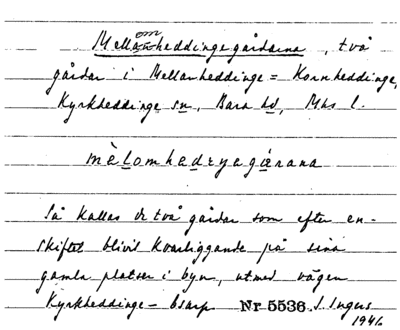 Mellanheddingegårdarna, två
om
gårdar i Mellanheddinge = Kornheddinge,
Kyrkheddinge sn, Bara hd, Mhs l.
mèlomhedryegærana
Så kallas de två gårdar som efter en-
skiftet blivit kvarliggande på sina
gamla platser i byn, utmed vägen
Kyrkheddinge – Esarp Nr 5536 S. Ingers
1941.